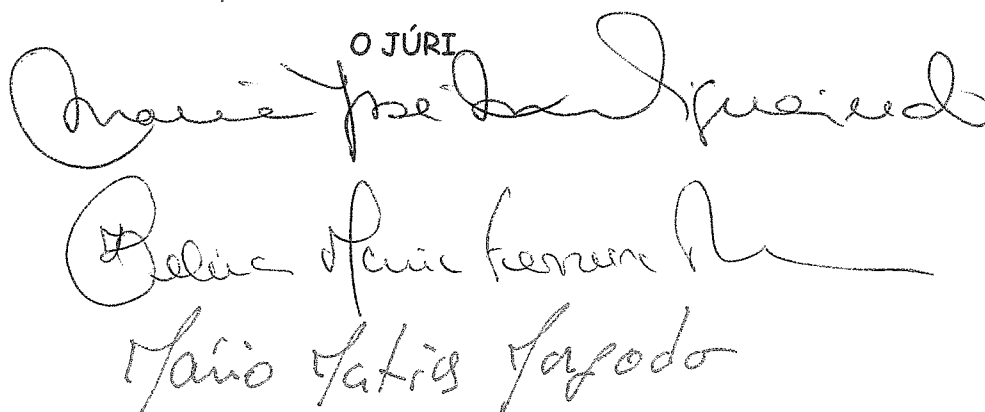 O JÚRI
Maria José Figueiredo
Maria Ferreira
Mário Matias Morgado